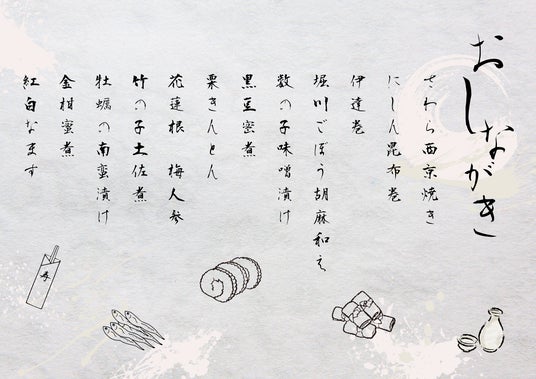 おしながき
さわら西京焼き
にしん昆布巻
伊達巻
堀川ごぼう胡麻和え
数の子味噌漬け
黒豆蜜煮
栗きんとん
花蓮根 梅人参
竹の子土佐煮
牡蠣の南蛮漬け
金柑蜜煮
紅白なます
寿